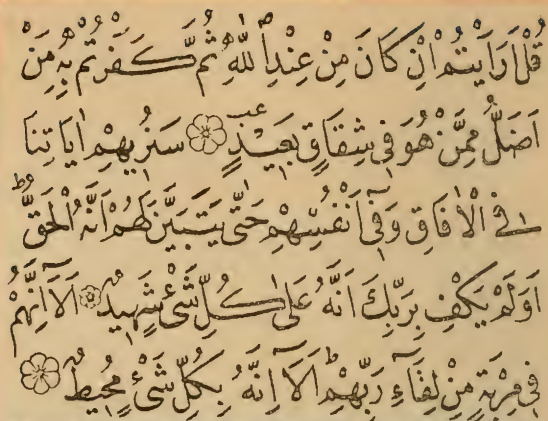 قُلْ اَرَاَيْتُمْ اِنْ كَانَ مِنْ عِنْدِ اللّٰهِ ثُمَّ كَفَرْتُمْ بِهٖ مَنْ
اَضَلُّ مِمَّنْ هُوَ فٖى شِقَاقٍ بَعٖيدٍ سَنُرٖيهِمْ اٰيَاتِنَا
فِى الْاٰفَاقِ وَفٖٓى اَنْفُسِهِمْ حَتّٰى يَتَبَيَّنَ لَهُمْ اَنَّهُ الْحَقُّ ط
اَوَلَمْ يَكْفِ بِرَبِّكَ اَنَّهُ عَلٰى كُلِّ شَىْءٍ شَهٖيدٌ اَلَٓا اِنَّهُمْ
فٖى مِرْيَةٍ مِنْ لِقَٓاءِ رَبِّهِمْ ط اَلَٓا اِنَّهُ بِكُلِّ شَىْءٍ مُحٖيطٌ